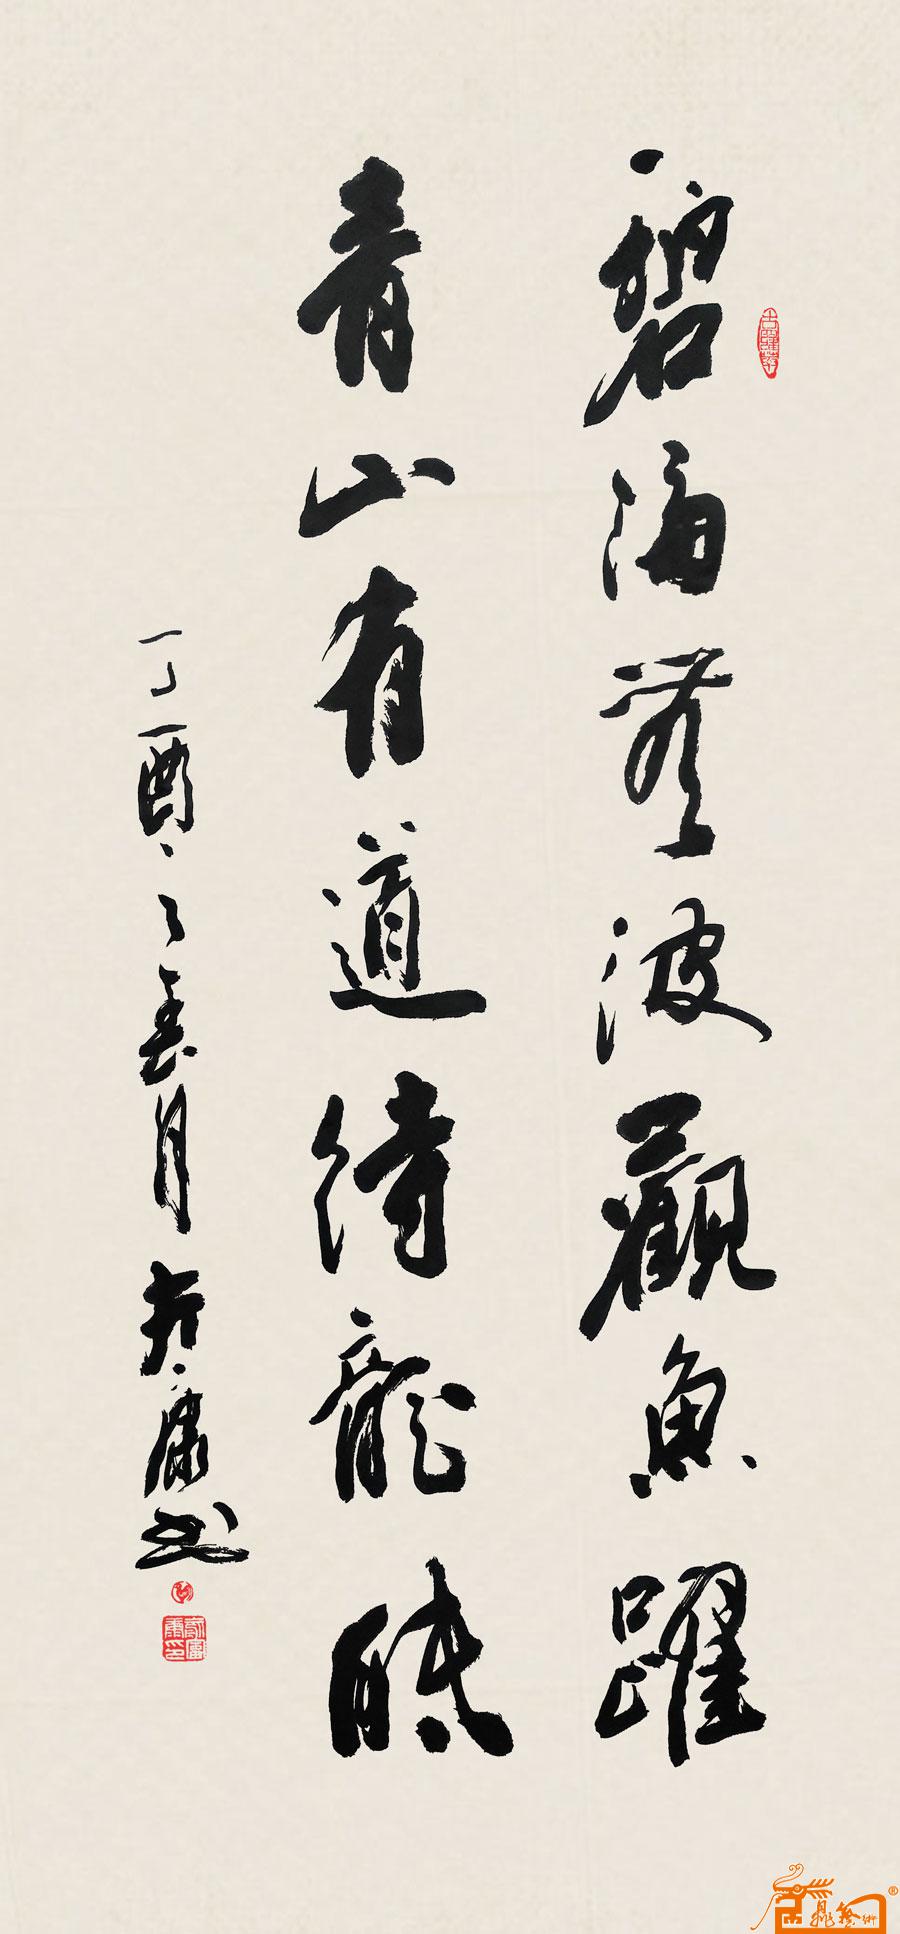 碧海無波觀魚躍
青山有道待龍眠
丁酉之春月
書